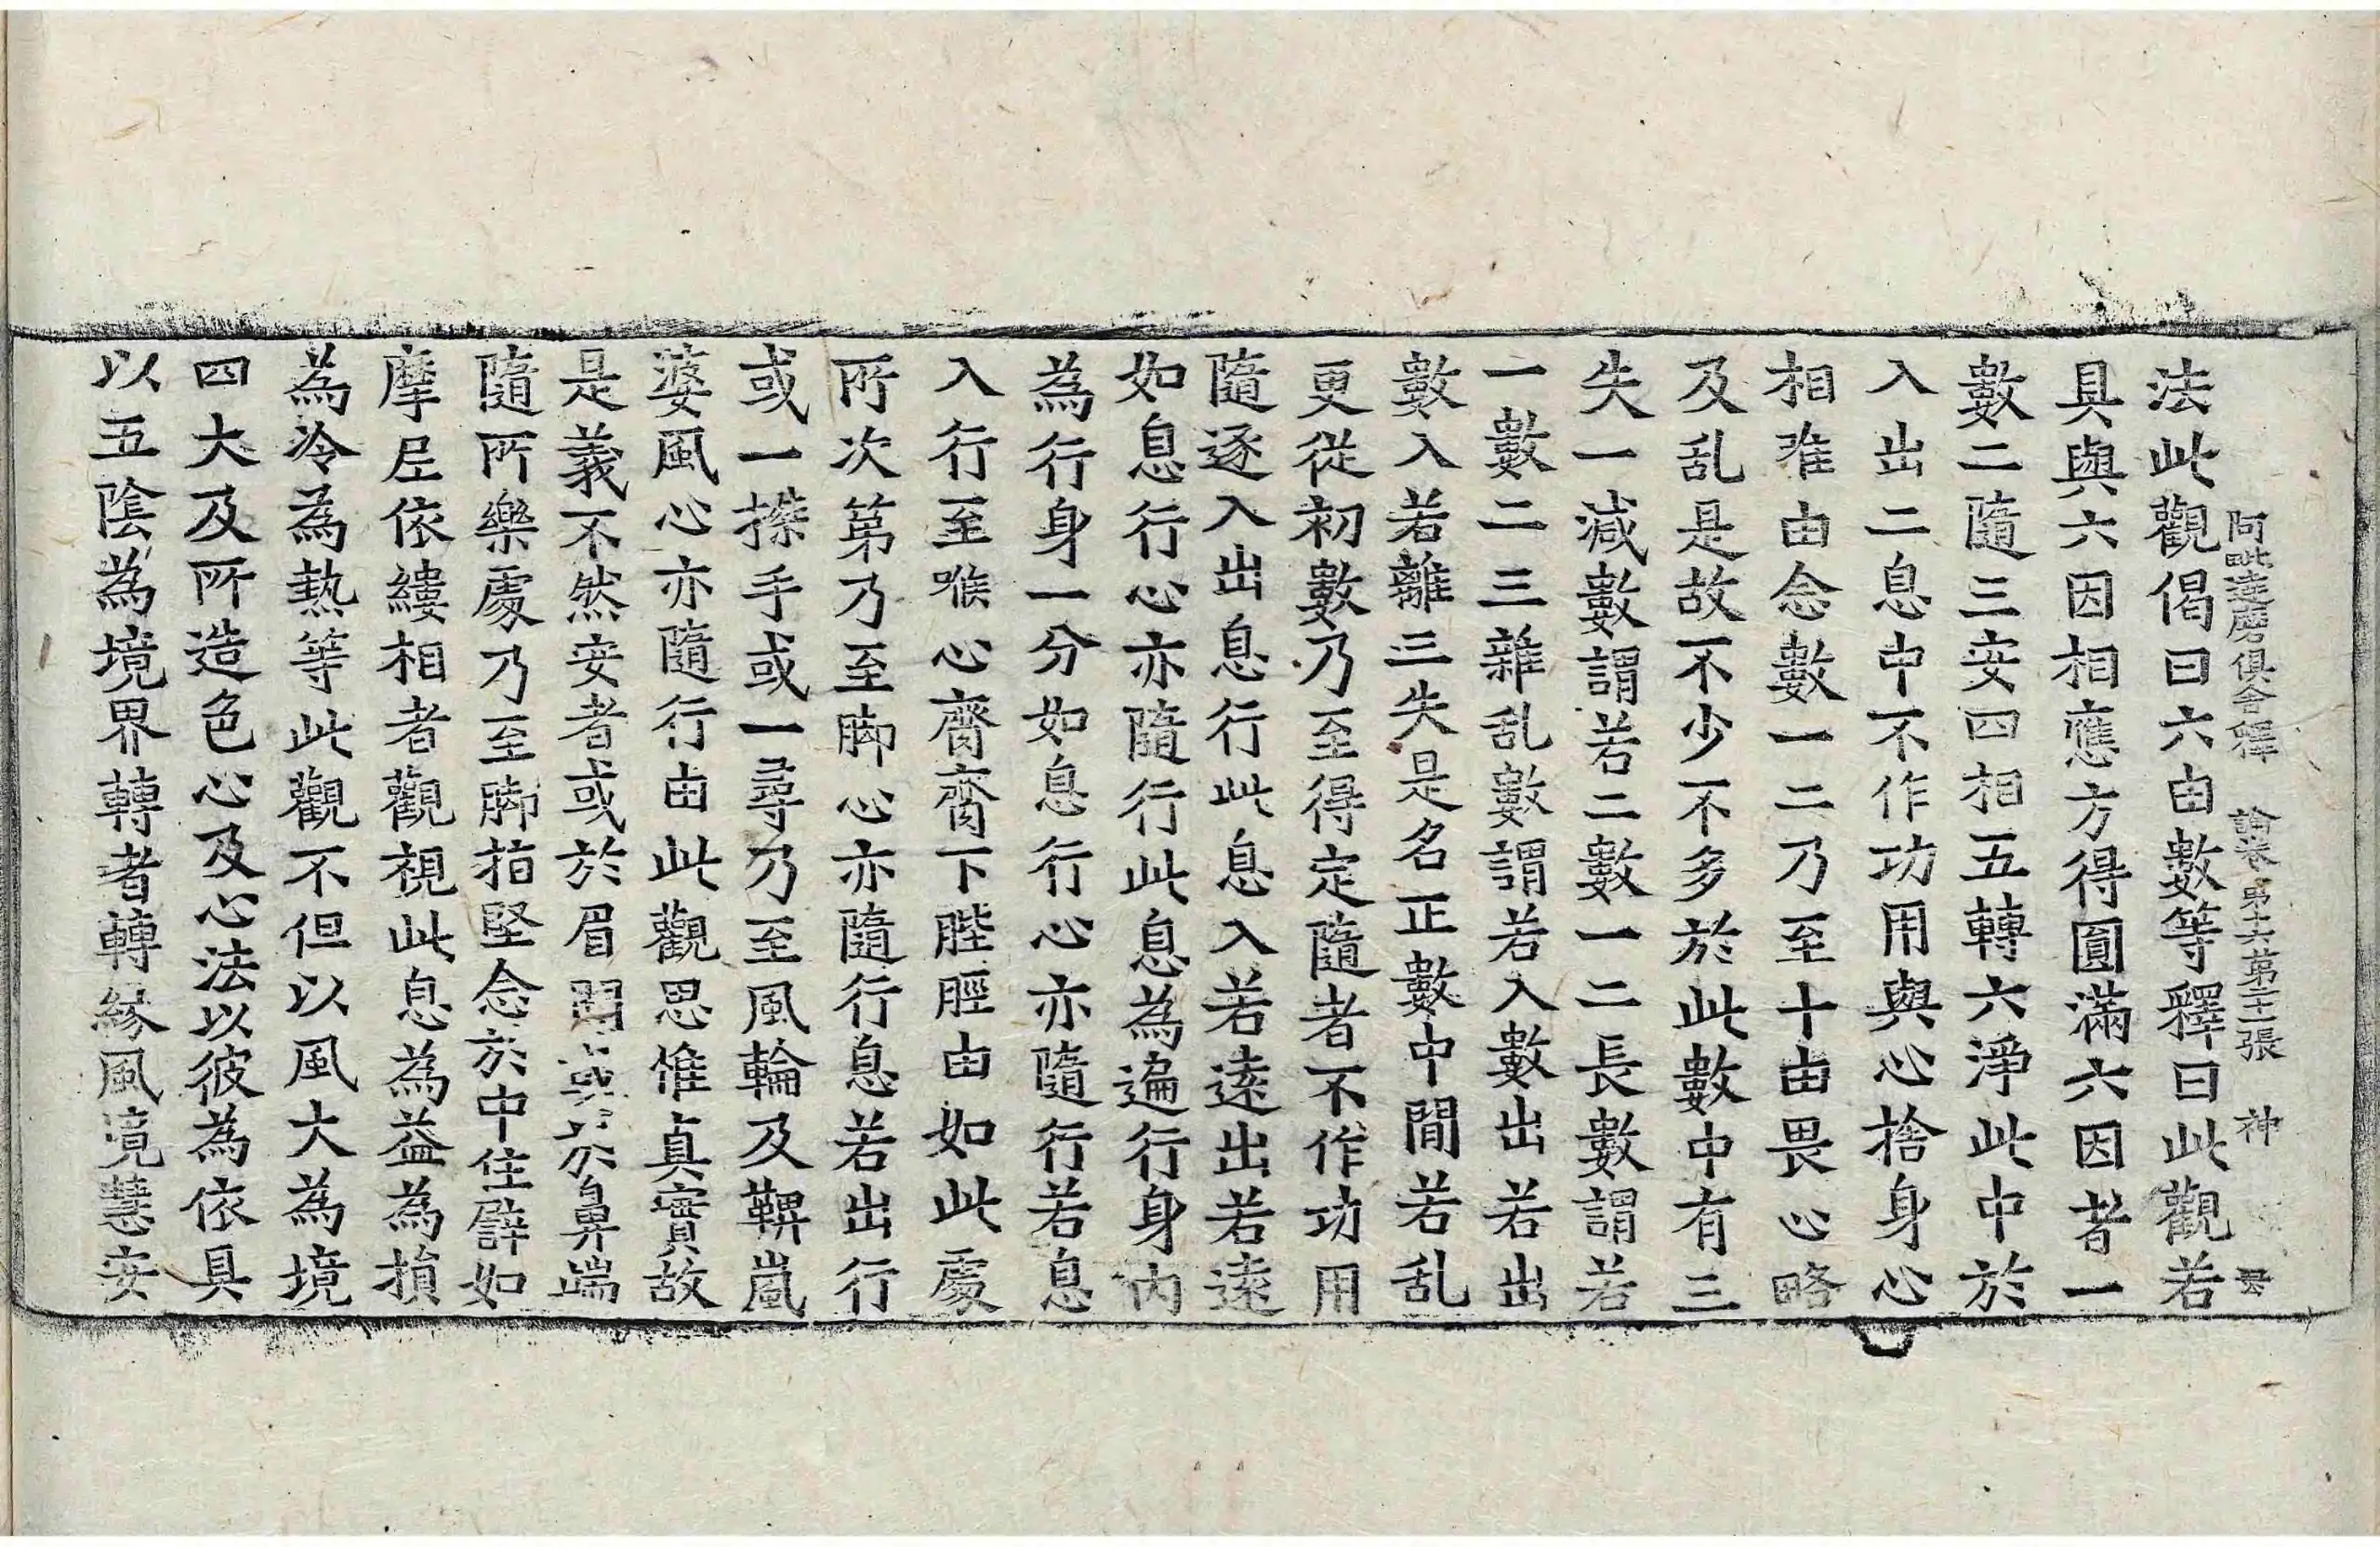 阿毗達磨俱舍釋論卷第十六第二十一張 神
法此觀偈曰六由數等釋曰此觀若
具與六因相應方得圓滿六因者一
數二隨三安四相五轉六淨此中於
入出二息中不作功用與心捨身心
相唯由念數一二乃至十由畏心略
及乱是故不少不多於此數中有三
失一減數謂若二數一二長數謂若
一數二三雜乱數謂若入數出若出
數入若離三失是名正數中間若乱
更從初數乃至得定隨者不作功用
隨逐入出息行此息入若遠出若遠
如息行心亦隨行此息為遍行身內
為行身一分如息行心亦隨行若息
入行至喉心齎齎下䏶脛由如此處
所次第乃至脚心亦隨行息若出行
或一搩手或一尋乃至風輪及鞞嵐
婆風心亦隨行由此觀思惟真實故
是義不然安者或於眉間或於鼻端
隨所樂處乃至脚指堅念於中住譬如
摩尼依縷相者觀視此息為益為損
為冷為熱等此觀不但以風大為境
四大及所造色心及心法以彼為依具
以五陰為境界轉者轉緣風境慧安